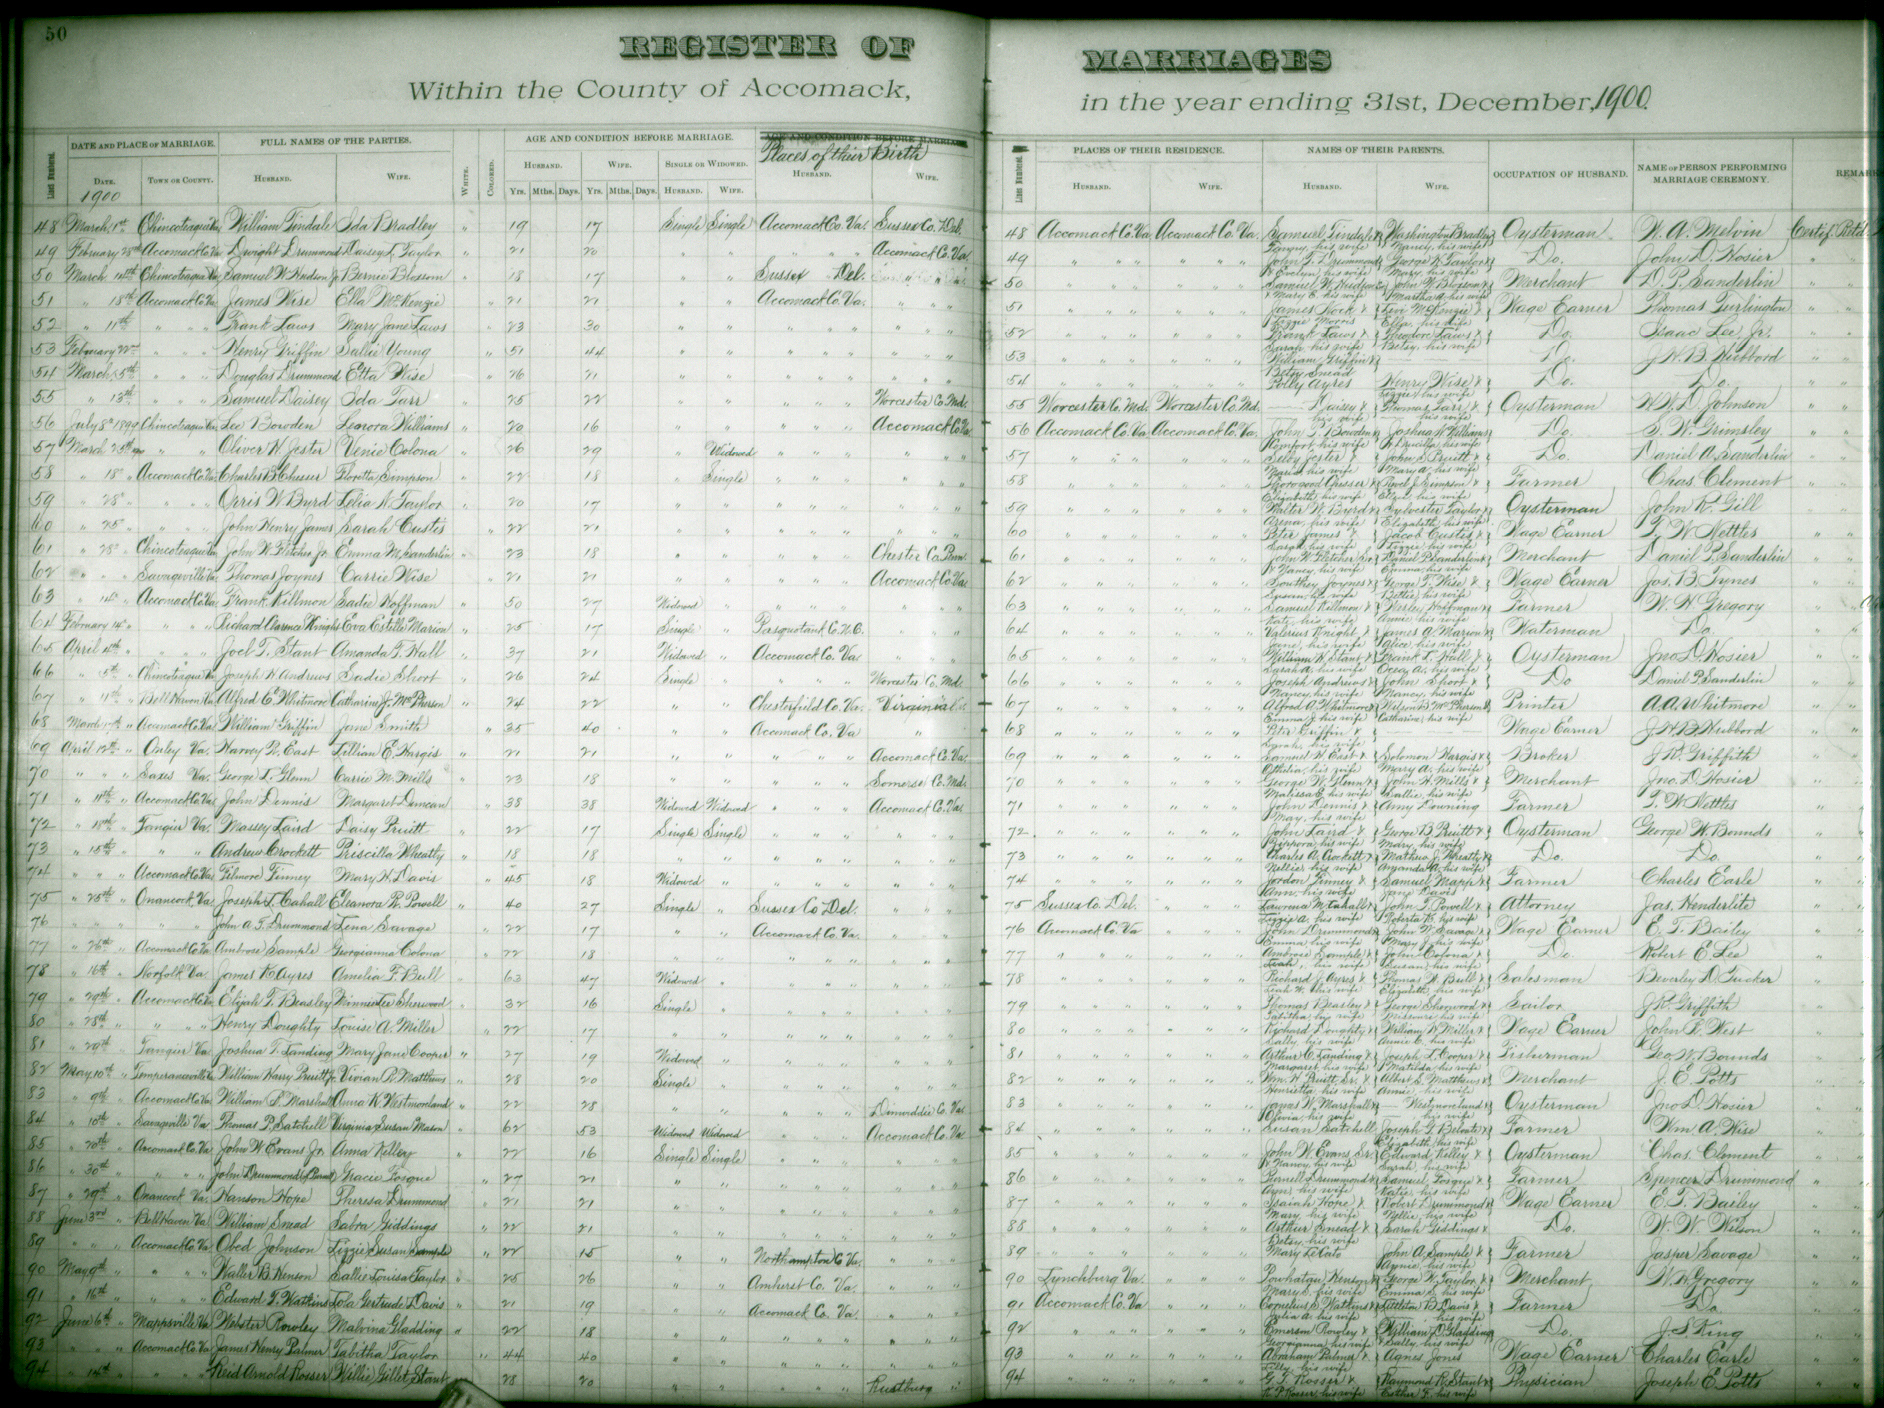 50
REGISTER OF MARRIAGES
Within the County of Accomack, in the year ending 31st, December, 1900.
DATE AND PLACE OF MARRIAGE. FULL NAMES OF THE PARTIES. AGE AND CONDITION BEFORE MARRIAGE. Places of their Birth
Lines Numbered. DATE. 1900 TOWN OR COUNTY. HUSBAND. WIFE. WHITE. COLORED. HUSBAND. WIFE. SINGLE OR WIDOWED. HUSBAND. WIFE.
Yrs. Mths. Days. Yrs. Mths. Days. HUSBAND. WIFE.
PLACES OF THEIR RESIDENCE. NAMES OF THEIR PARENTS. OCCUPATION OF HUSBAND. NAME OF PERSON PERFORMING MARRIAGE CEREMONY.
Lines Numbered. HUSBAND. WIFE. HUSBAND. WIFE.
48 March 1st William Tindale Ida Bradley " 19 17 Single Single Accomack Co. Va. Sussex Co. Del.
49 February 28th Accomack Co. Va Dwight Drummond Daisey L. Taylor " 21 20 " " " " " Accomack Co. Va.
50 March 14th Samuel W. Hudson Jr Bernie Blossom " 18 17 " " Sussex Del.
51 " 18th Accomack Co. Va. James Wise Ella McKenzie " 21 21 " " Accomack Co. Va.
52 " 11th " " " Frank Laws Mary Jane Laws " 23 30
53 February 22nd " " " Henry Griffin Sallie Young " 51 44
54 March 5th " " " Douglas Drummond Etta Wise " 26 21
55 " 13th " " " Samuel Daisey Ida Tarr " 25 22 " " " " " Worcester Co. Md.
56 July 8th 1899 Lee Bowden Leonora Williams " 20 16 " " " " " Accomack Co. Va
57 March 25th Oliver W. Jester Venie Colona " 26 29 " Widowed
58 " 18th Accomack Co. Va Charles B. Chesser Floretta Simpson " 22 18 " Single
59 " 28th " " " Orris W. Byrd Lelia N. Taylor " 20 17
60 " 25th " " " John Henry James Sarah Custis " 22 21
61 " 28th " John W. Fletcher, Jr. Emma M. Sanderlin " 23 18 " " " " " Chester Co. Penn.
62 " " " Savageville Va. Thomas Joynes Carrie Wise " 21 21 " " " " " Accomack Co. Va.
63 " 14th " Accomack Co. Va. Frank Killmon Sadie Hoffman " 50 27 Widowed
64 February 14th " " " Richard Clarence Knight Eva Estelle Marion " 25 17 Single " Pasquotank Co. N.C.
65 April 4th " " " Joel T. Stant Amanda F. Hall " 37 21 Widowed " Accomack Co. Va
66 " 5th Joseph W. Andrews Sadie Short " 26 24 Single " " " " Worcester Co. Md.
67 " 11th " Bell Haven Va Alfred C. Whitmore Catharine J. McPherson " 24 22 " " Chesterfield Co. Va. Virginia
68 March " Accomack Co. Va William Griffin Jane Smith " 35 40 " " Accomack Co. Va
69 April 12th " Onley Va. Harvey R. East Lillian E. Hargis " 21 21 " " " " " Accomack Co. Va.
70 " " " Saxis Va. George T. Glenn Carrie M. Mills " 23 18 " " " " " Somerset Co. Md.
71 " 11th " Accomack Co. Va John Dennis Margaret Duncan " 38 38 Widowed Widowed " " " Accomack Co. Va.
72 " 18th " Tangier Va. Massey Laird Daisy Pruitt " 22 17 Single Single
73 " 15th " " " Andrew Crockett Priscilla Wheatly " 18 18
74 " " " Accomack Co. Va. Filmore Finney Mary W. Davis " 45 18 Widowed
75 " 25th " Onancock, Va. Joseph L. Cahall Eleanora R. Powell " 40 27 Single " Sussex Co. Del.
76 " " " " " John A. T. Drummond Lena Savage " 22 17 " " Accomack Co. Va.
77 " " Accomack Co. Va Ambrose Sample Georgianna Colona " 22 18
78 " 16th " Norfolk Va. James K. Ayres Amelia F. Bull " 63 47 Widowed
79 " 29th " Accomack Co. Va. Elijah T. Beasley Sherwood " 32 16 Single
80 " 28th " " " Henry Doughty Louise A. Miller " 22 17
81 " 29th " Tangier Va. Joshua T. Landing Mary Jane Cooper " 27 19 Widowed
82 May 10th " Temperanceville Va William Harry Pruitt Jr. Vivian R. Matthews " 28 20 Single
83 " 9th " Accomack Co. Va William S. Marshall Anna K. Westmoreland " 22 28 " " " " " Dinwiddie Co. Va.
84 " 10th " Savageville Va Thomas P. Satchell Virginia Susan Mason " 62 53 Widowed Widowed " " " Accomack Co. Va.
85 " 20th " Accomack Co. Va. John W. Evans Jr. Anna Kelley " 22 16 Single Single
86 " 30th " " " John Drummond Gracie Fosque " 27 21
87 " 29th " Onancock Va. Hanson Hope Theresa Drummond " 21 21
88 June 3rd " Bell Haven Va. William Snead Sabra Giddings " 22 21
89 " " " Accomack Co. Va Obed Johnson Lizzie Susan Sample " 22 15 " " Northampton Co. Va.
90 May 9th " " " Waller B. Henson Sallie Louisa Taylor " 25 26 " " Amherst Co. Va.
91 " 16th " " " Edward T. Watkins Lola Gertrude Davis " 21 19 " " Accomack Co. Va.
92 June 6th " Mappsville Va Webster Rowley Malvina Gladding " 22 18
93 " " Accomack Co. Va James Henry Palmer Tabitha Taylor " 44 40
94 " 14th " " " Reid Arnold Rosser Willie Gillet Stant " 28 20 " " " " " Rustburg "
48 Accomack Co. Va. Accomack Co. Va. Samuel Tindale & Fanny, his wife Washington Bradley & Nancy, his wife Oysterman W. A. Melvin Certif. Ret'd
49 John T. Drummond & Evelyn, his wife George K. Taylor & Mary, his wife Do. John D. Hosier
50 Samuel W. Hudson & Mary E. his wife John W. Blossom & Martha A. his wife Merchant D. P. Sanderlin
51 James Rock & Lizzie Morris Levi McKenzie & Ella, his wife Wage Earner Thomas Turlington
52 Frank Laws & Sarah, his wife Theodore Laws & Betsy, his wife Do. Isaac Lee Jr.
53 William Griffin & Betsy Snead Do. J. H. B. Hubbord
54 Polly Ayres Henry Wise & Lizzie, his wife Do. Do.
55 Worcester Co. Md. Worcester Co. Md. — Daisey & his wife Thomas Tarr & his wife Oysterman W. D. Johnson
56 Accomack Co. Va Accomack Co. Va. John T. Bowden & Comfort, his wife Joshua W. Williams & Drucilla, his wife Do. S. W. Grimsley
57 Selby Jester & Maria, his wife John S. Pruitt & Mary A. his wife Do. Daniel A. Sanderlin
58 Thorogood Chesser & Elizabeth, his wife J. Simpson & Ellen, his wife Farmer Chas. Clement
59 Walter W. Byrd & Arena, his wife Sylvester Taylor & Elizabeth, his wife Oysterman John R. Gill
60 Peter James & Sarah, his wife Jacob Custis & Lizzie, his wife Wage Earner T. W. Nettles
61 John W. Fletcher Sr. & Nancy, his wife Daniel P. Sanderlin & Emma, his wife Merchant Daniel P. Sanderlin
62 Southey Joynes & Susan, his wife George T. Wise & Bettie, his wife Wage Earner Jos. B. Tynes
63 Samuel Killmon & Katy, his wife Wesley Hoffman & Annie, his wife Farmer W. H. Gregory
64 Valerius Knight & Jane, his wife James A. Marion & Alice, his wife Waterman Do.
65 William H. Stant & Sarah A. his wife Frank T. Hall & Ocea A. his wife Oysterman Jno. D. Hosier
66 Joseph Andrews & Nancy, his wife John Short & Nancy, his wife Do Daniel P. Sanderlin
67 Alfred A. Whitmore & Emma J. his wife McPherson & Catharine, his wife Printer A. A. Whitmore
68 Peter Griffin & Sarah, his wife Wage Earner J. H. B. Hubbord
69 Samuel H. East & Othelia, his wife Solomon Hargis & Mary A. his wife Broker J. W. Griffith
70 George W. Glenn & his wife John H. Mills & Sallie, his wife Merchant Jno. D. Hosier
71 John Dennis & Mary, his wife Amy Downing Farmer T. W. Nettles
72 John Laird & Zippora, his wife George B. Pruitt & Mary, his wife Oysterman George W. Bounds
73 Charles A. Crockett & Nellie, his wife J. Wheatly & Amanda A. his wife Do. Do.
74 Jordon Finney & Ann, his wife Samuel Mapp & Jane Davis Farmer Charles Earle
75 Sussex Co. Del. Lawrence M. Cahall & Lizzie A. his wife John T. Powell & Roberta R. his wife Attorney Jas. Henderlite
76 Accomack Co. Va John Drummond & Emma, his wife John W. Savage & Mary J. his wife Wage Earner E. T. Bailey
77 Ambrose Sample & Leah, his wife John Colona & Susan, his wife Do. Robert E. Lee
78 Richard J. Ayres & Leah W. his wife Thomas W. Bull & Elizabeth, his wife Salesman Beverley D. Tucker
79 Thomas Beasley & Tabitha, his wife George Sherwood & Missouri, his wife Sailor J. W. Griffith
80 Richard Doughty & Sally, his wife William W. Miller & Annie E. his wife Wage Earner John R. West
81 Arthur C. Landing & Margaret, his wife Joseph L. Cooper & Matilda, his wife Fisherman Geo. W. Bounds
82 Wm. H. Pruitt Sr. & Henrietta, his wife Albert S. Matthews & Annie, his wife Merchant J. E. Potts
83 James W. Marshall & Olivia, his wife — Westmoreland & — his wife Oysterman Jno. D. Hosier
84 Susan Satchell Joseph G. Beloate & Elizabeth, his wife Farmer Wm. A. Wise
85 John W. Evans Sr. & Nancy, his wife Edward Kelley & Sarah, his wife Oysterman Chas. Clement
86 Purnell Drummond & his wife Samuel Fosque & Katie, his wife Farmer Spencer Drummond
87 Isaiah Hope & Mary, his wife Robert Drummond & Nellie, his wife Wage Earner E. T. Bailey
88 Arthur Snead & Betsy, his wife Sarah Giddings & Do. W. W. Wilson
89 Mary LeCato John A. Sample & Annie, his wife Farmer Jasper Savage
90 Lynchburg Va. Powhatan Henson & Mary S. his wife George W. Taylor & Emma S. his wife Merchant W. H. Gregory
91 Accomack Co. Va Cornelius S. Watkins & Julia A. his wife Littleton B. Davis & his wife Farmer Do.
92 Emerson Rowley & Georgianna, his wife William O. Gladding & Sally, his wife Do. J. S. King
93 Abraham Palmer & Lilly, his wife Agnes Jones Wage Earner Charles Earle
94 G. T. Rosser & K. P. Rosser, his wife Raymond R. Stant & Esther F. his wife Physician Joseph E. Potts